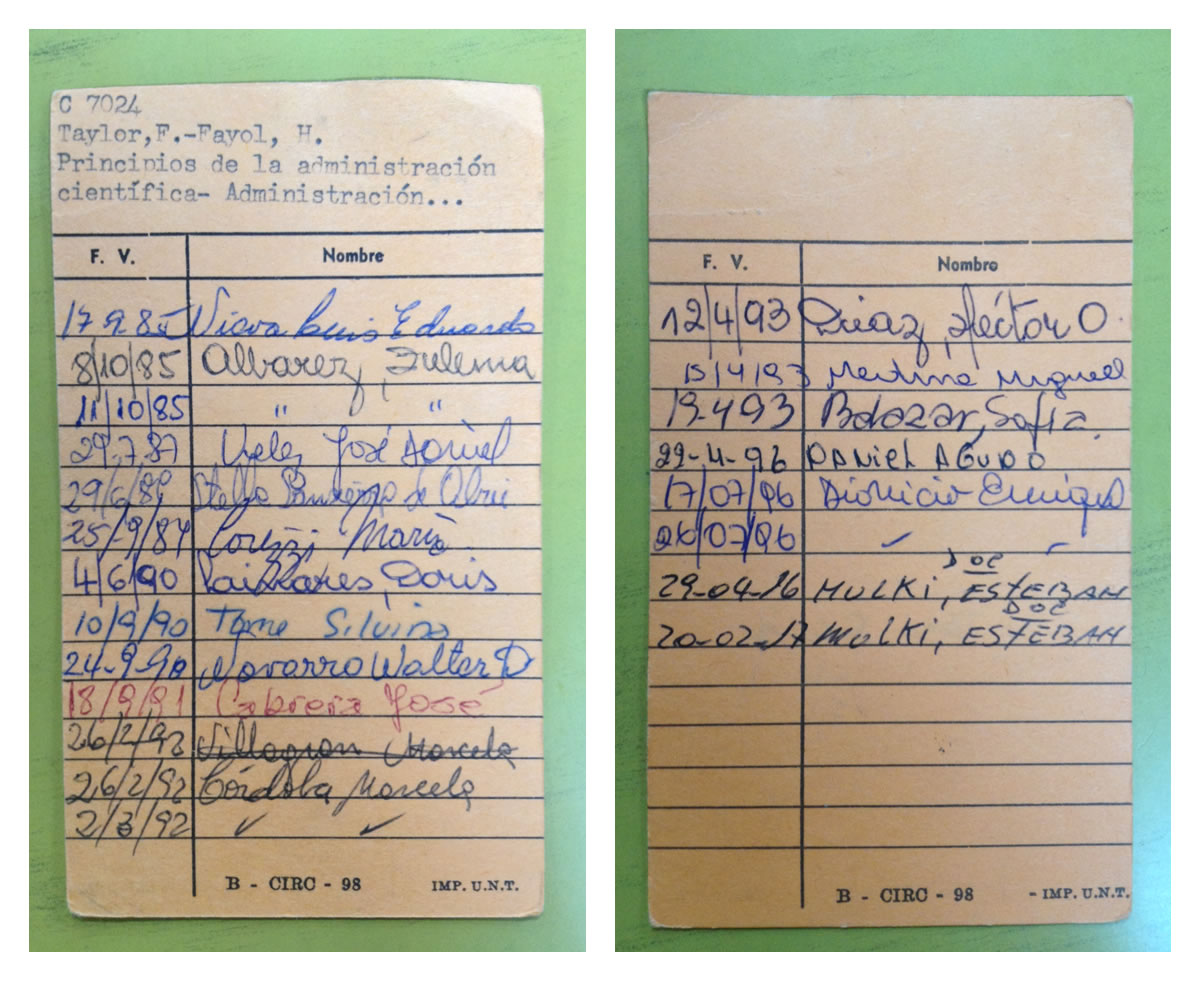 C 7024
Taylor,F.-Fayol, H.
Principios de la administración
científica- Administración...
F. V. Nombre
17 9 85 Luis Eduardo
8/10/85 Alvarez, Zulema
11/10/85 " "
29.7.87 José Daniel
29/6/89 Stella de
25/9/89 María
4/6/90 Doris
10/9/90 Tome Silvina
24-9-90 Navarro Walter D
18/9/91 Cabrera José
26/2/92 Villagran Marcela
26/2/92 Córdoba Marcela
2/3/92 ✓ ✓
B - CIRC - 98 IMP. U.N.T.
F. V. Nombre
12/4/93 Diaz, Héctor O.
15/4/93 Miguel
19-4-93 Sofía.
29-4-96 DANIEL AGUDO
17/07/96 Dionicio Enrique
26/07/96 ✓ ✓
DOC
29-04-16 MULKI, ESTEBAN
DOC
20-02-17 MULKI, ESTEBAN
B - CIRC - 98 - IMP. U.N.T.